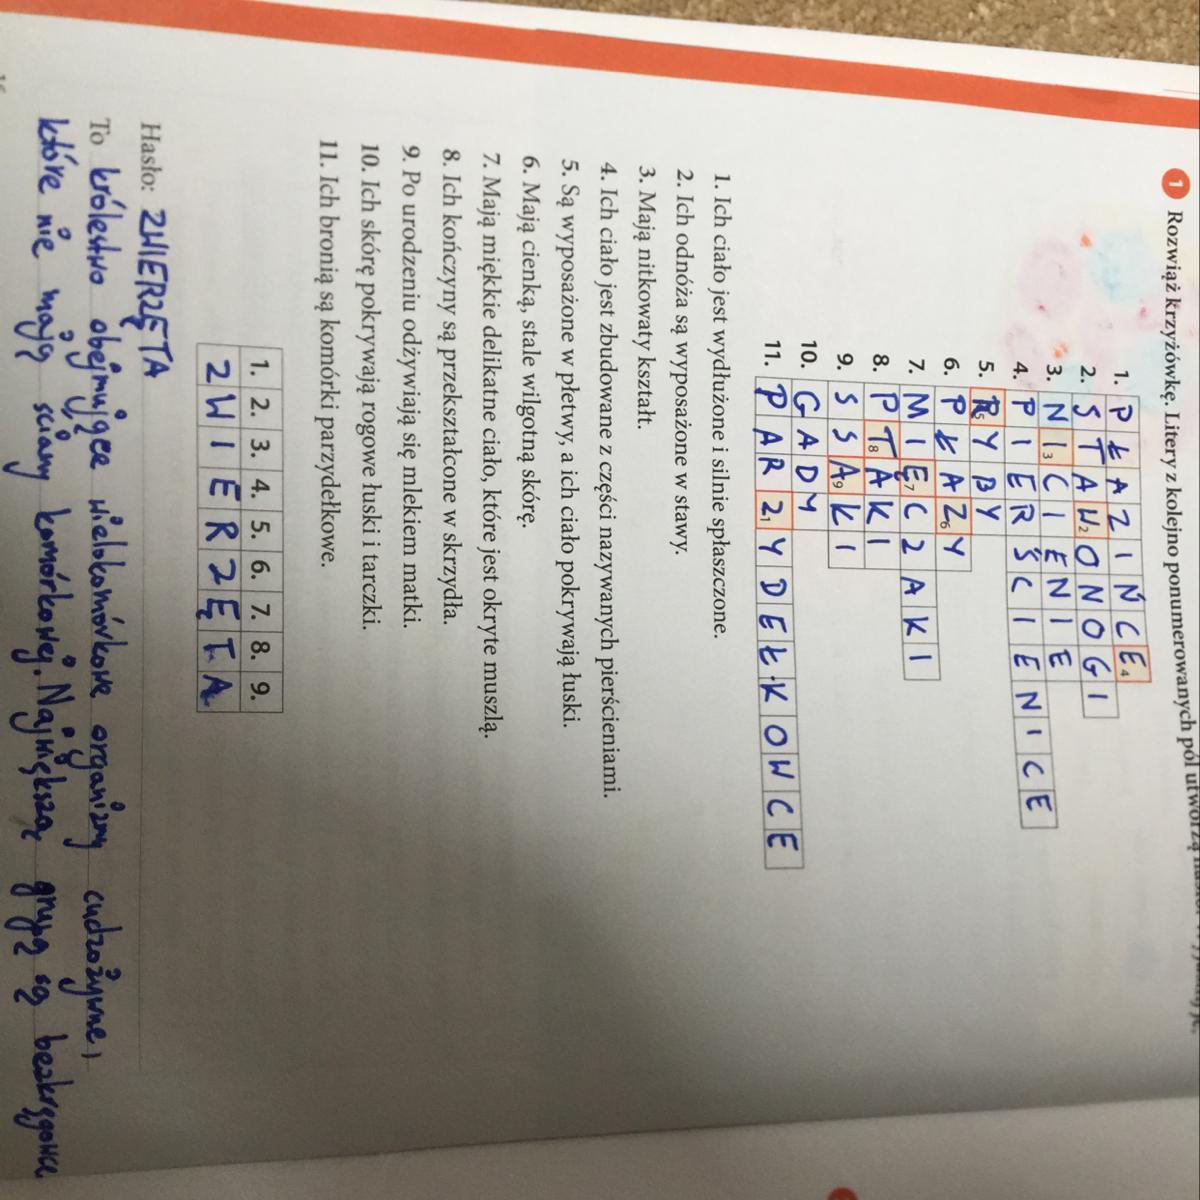 1 Rozwiąż krzyżówkę. Litery z kolejno ponumerowanych pól utworzą
1. PŁAZIŃCE4
2. STAW2ONOGI
3. NI3CIENIE
4. PIERŚCIENICE
5. R5YBY
6. PŁAZ6Y
7. MIĘ7CZAKI
8. PT8AKI
9. SSA9KI
10. GADY
11. PARZ1YDEŁKOWCE
1. Ich ciało jest wydłużone i silnie spłaszczone.
2. Ich odnóża są wyposażone w stawy.
3. Mają nitkowaty kształt.
4. Ich ciało jest zbudowane z części nazywanych pierścieniami.
5. Są wyposażone w płetwy, a ich ciało pokrywają łuski.
6. Mają cienką, stale wilgotną skórę.
7. Mają miękkie delikatne ciało, które jest okryte muszlą.
8. Ich kończyny są przekształcone w skrzydła.
9. Po urodzeniu odżywiają się mlekiem matki.
10. Ich skórę pokrywają rogowe łuski i tarczki.
11. Ich bronią są komórki parzydełkowe.
1. 2. 3. 4. 5. 6. 7. 8. 9.
Z W I E R Z Ę T A
Hasło: ZWIERZĘTA
To królestwo obejmujące wielokomórkowe organizmy cudzożywne,
które nie mają ściany komórkowej. Największą grupą są bezkręgowce